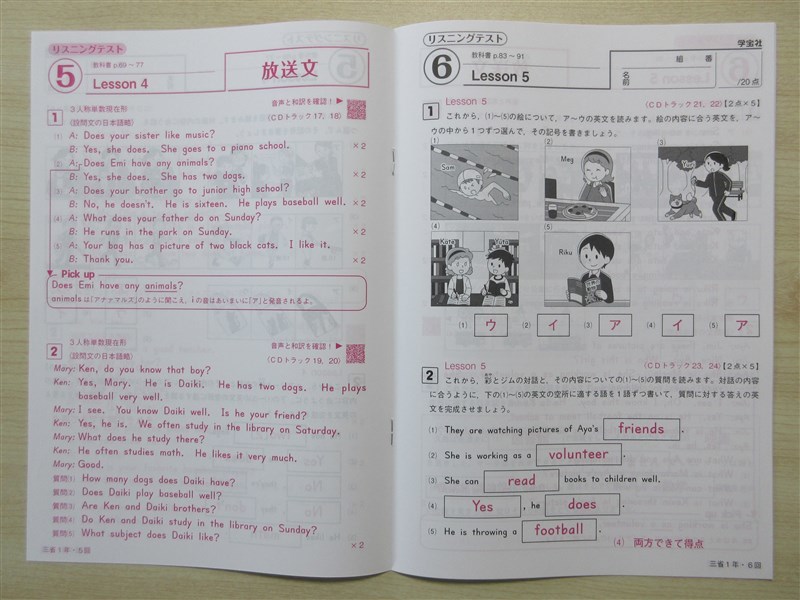 リスニングテスト
5
教科書 p.69~77
Lesson 4
放送文
音声と和訳を確認!▶
1
3人称単数現在形
(設問文の日本語略)
(CDトラック17, 18)
(1) A: Does your sister like music?
B: Yes, she does. She goes to a piano school. ×2
(2) A: Does Emi have any animals?
B: Yes, she does. She has two dogs. ×2
(3) A: Does your brother go to junior high school?
B: No, he doesn't. He is sixteen. He plays baseball well. ×2
(4) A: What does your father do on Sunday?
B: He runs in the park on Sunday. ×2
(5) A: Your bag has a picture of two black cats. I like it.
B: Thank you. ×2
Pick up
Does Emi have any animals?
animalsは「アナァマルズ」のように聞こえ, iの音はあいまいに「ァ」と発音されるよ。
2
3人称単数現在形
(設問文の日本語略)
音声と和訳を確認!▶
(CDトラック19, 20)
Mary: Ken, do you know that boy?
Ken: Yes, Mary. He is Daiki. He has two dogs. He plays
baseball very well.
Mary: I see. You know Daiki well. Is he your friend?
Ken: Yes, he is. We often study in the library on Saturday.
Mary: What does he study there?
Ken: He often studies math. He likes it very much.
Mary: Good.
質問(1) How many dogs does Daiki have?
質問(2) Does Daiki play baseball well?
質問(3) Are Ken and Daiki brothers?
質問(4) Do Ken and Daiki study in the library on Sunday?
質問(5) What subject does Daiki like? ×2
三省1年・5回
リスニングテスト
学宝社
6
教科書 p.83~91
Lesson 5
組 番
名前
/20点
1
Lesson 5
(CDトラック21, 22)【2点×5】
これから, (1)~(5)の絵について, ア~ウの英文を読みます。絵の内容に合う英文を, ア~
ウの中から1つずつ選んで, その記号を書きましょう。
(1) (2) (3)
Sam
Meg
Yuri
(4) (5)
Kate
Yuta
Riku
(1) ウ (2) イ (3) ア (4) イ (5) ア
2
Lesson 5
(CDトラック23, 24)【2点×5】
これから, 彩とジムの対話と, その内容についての(1)~(5)の質問を読みます。対話の内容
に合うように, 下の(1)~(5)の英文の空所に適する語を1語ずつ書いて, 質問に対する答えの英
文を完成させましょう。
(1) They are watching pictures of Aya's friends.
(2) She is working as a volunteer.
(3) She can read books to children well.
(4) Yes, he does.
(5) He is throwing a football.
(4) 両方できて得点
三省1年・6回